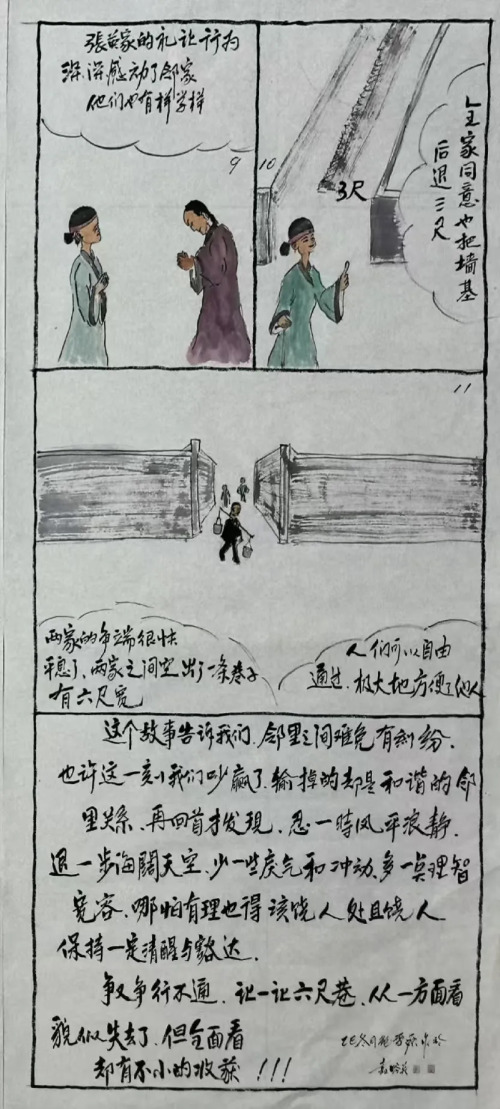 張英家的礼让行为
深深感动了邻家
他们也有样学样
9
10
王家同意也把墙基
后退三尺
3尺
11
两家的争端很快
平息了、两家之间空出了一条巷子
有六尺宽
人们可以自由
通过、极大地方便了他人
这个故事告诉我们、邻里之间难免有糾纷.
也许这一刻我们吵赢了.输掉的却是和谐的邻
里关系、再回首才发现、忍一時风平浪静.
退一步海闊天空.少一些戾气和冲动.多一点理智
宽容、哪怕有理也得该饶人处且饶人.
保持一定清醒与豁达.
争又争行不通、让一让六尺巷.从一方面看
貌似失去了.但全面看
却有不小的收获!!!
乙巳冬月